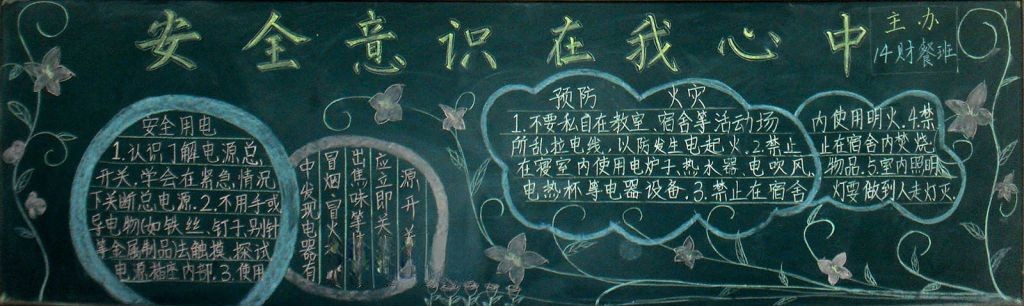 安全意识在我心中
主办
14财餐班
安全用电
1.认识了解电源总
开关,学会在紧急情况
下关断总电源.2.不用手或
导电物(如铁丝、钉子、别针
等金属制品法触摸、探试
电源插座内部.3.使用
中发现电器有
冒烟、冒火、
出焦味等
应立即关
源开关
预防 火灾
1.不要私自在教室、宿舍等活动场
所乱拉电线,以防发生电起火.2.禁止
在寝室内使用电炉子、热水器、电吹风、
电热杯等电器设备.3.禁止在宿舍
内使用明火.4.禁
止在宿舍内焚烧
物品.5.室内照明
灯要做到人走灯灭.